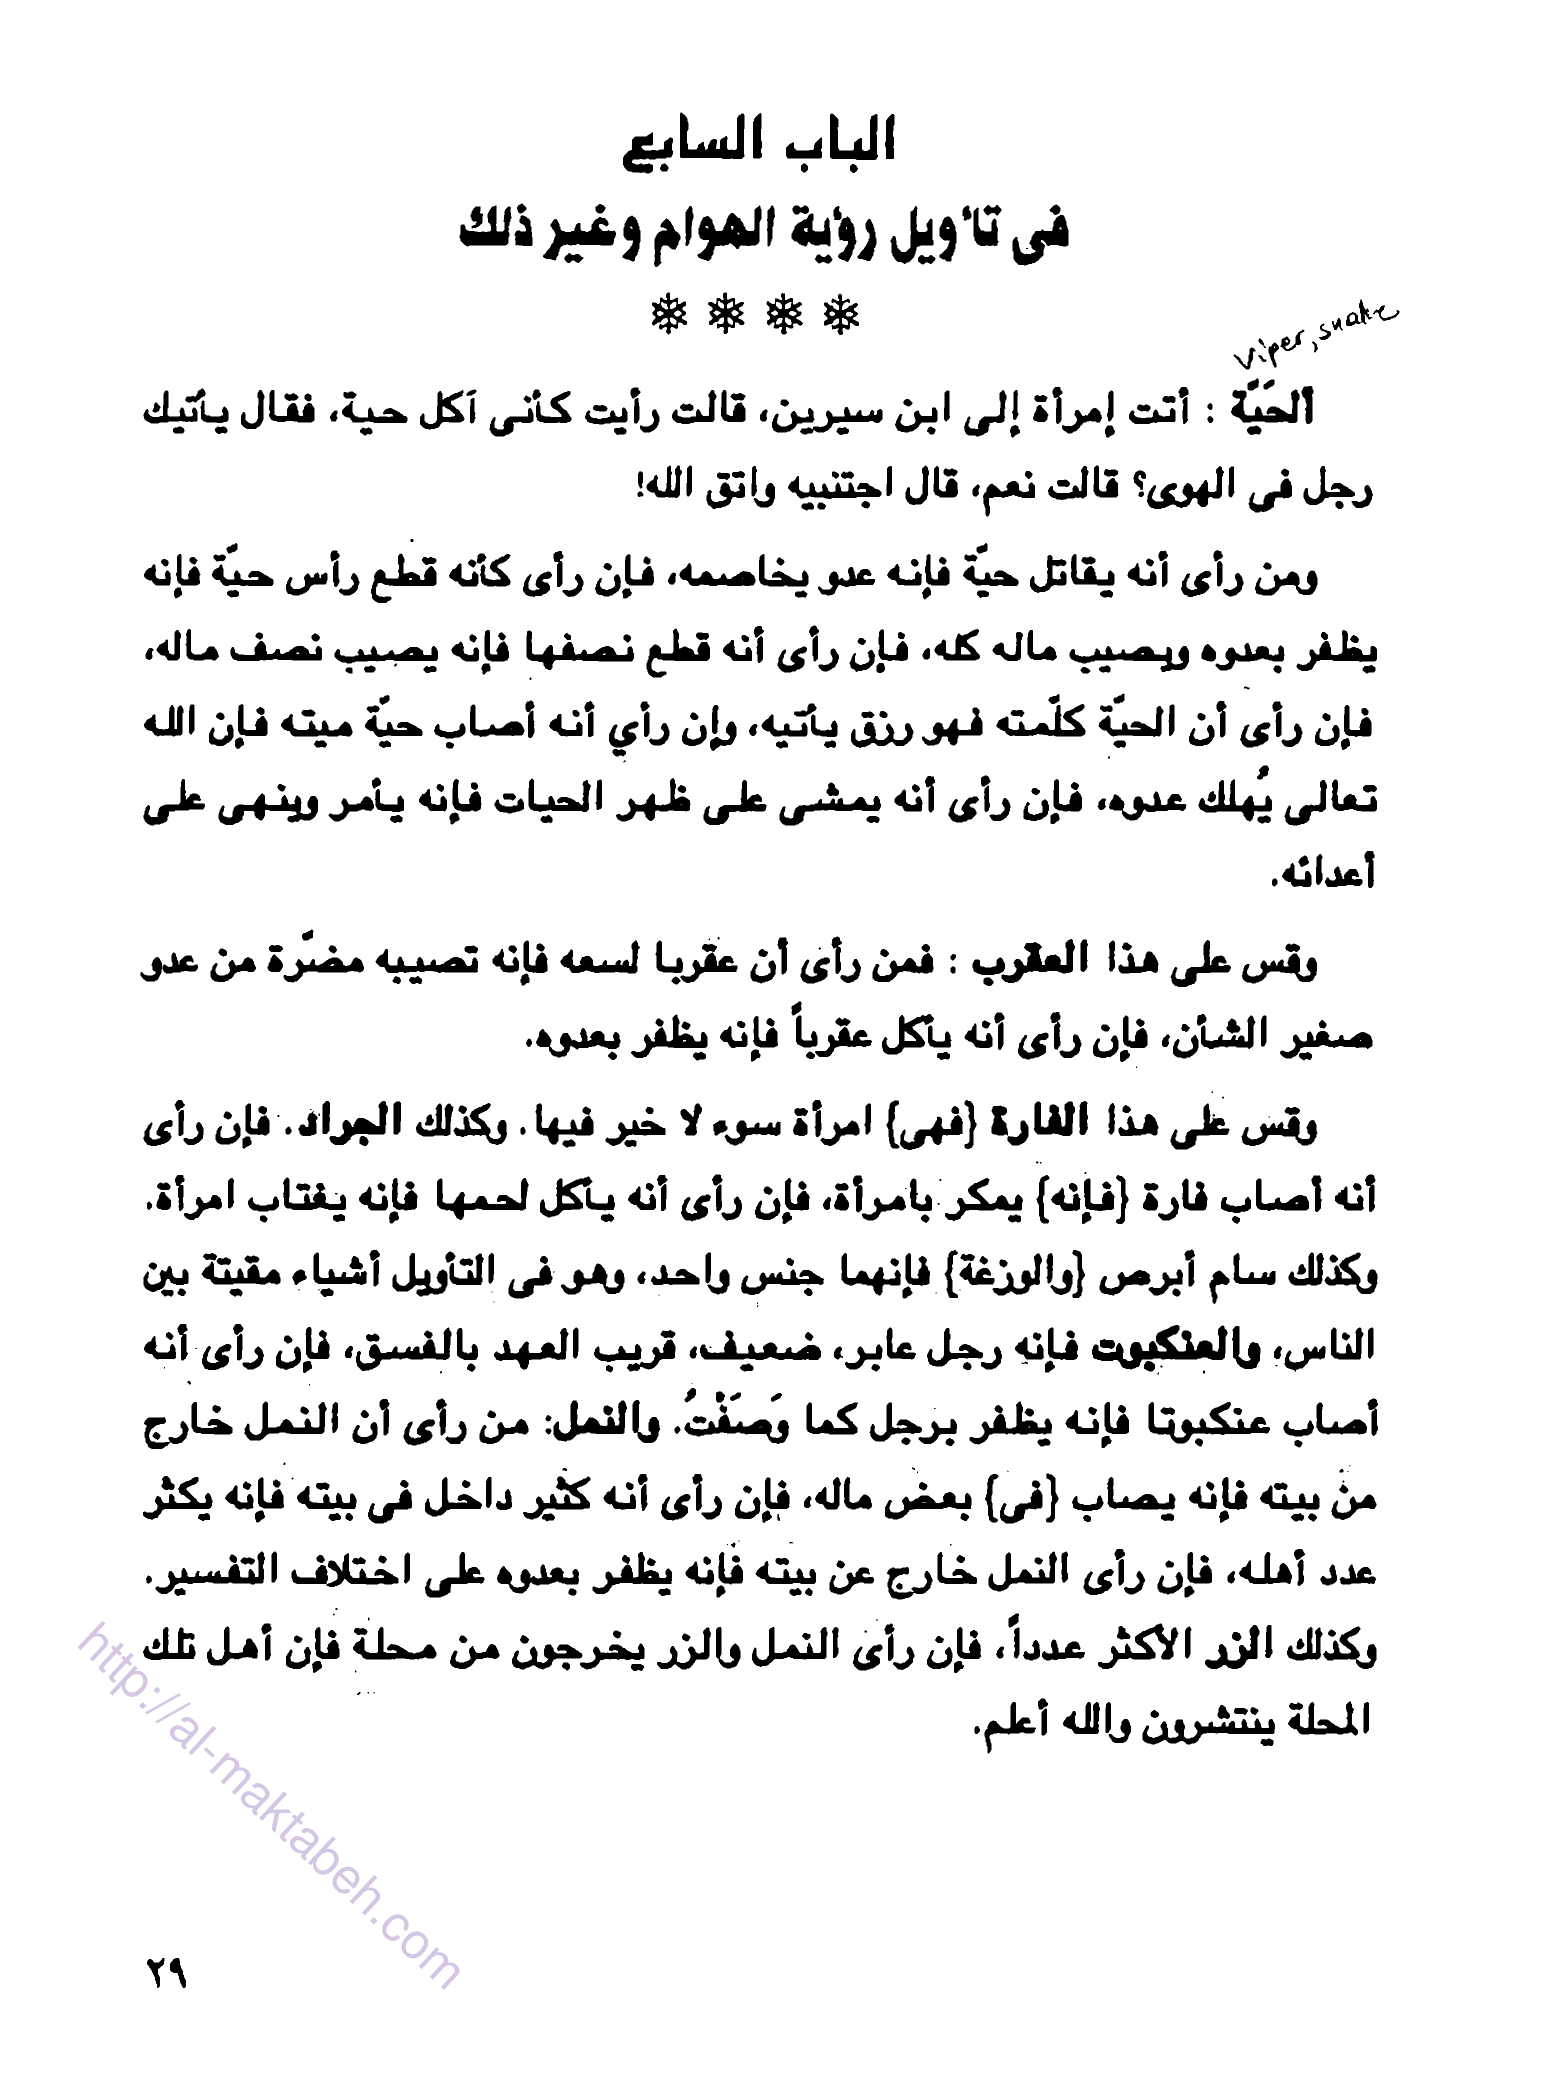 الباب السابع
فى تأويل رؤية الهوام وغير ذلك
viper, snake
ألحَيَّة : أتت إمرأة إلى ابن سيرين، قالت رأيت كأنى آكل حية، فقال يأتيك
رجل فى الهوى؟ قالت نعم، قال اجتنبيه واتق الله!
ومن رأى أنه يقاتل حيّة فإنه عدو يخاصمه، فإن رأى كأنه قطع رأس حيّة فإنه
يظفر بعدوه ويصيب ماله كله، فإن رأى أنه قطع نصفها فإنه يصيب نصف ماله،
فإن رأى أن الحيّة كلّمته فهو رزق يأتيه، وإن رأي أنه أصاب حيّة ميته فإن الله
تعالى يُهلك عدوه، فإن رأى أنه يمشى على ظهر الحيات فإنه يأمر وينهى على
أعدائه.
وقس على هذا العقرب : فمن رأى أن عقربا لسعه فإنه تصيبه مضرّة من عدو
صغير الشأن، فإن رأى أنه يأكل عقرباً فإنه يظفر بعدوه.
وقس على هذا الفارة {فهى} امرأة سوء لا خير فيها. وكذلك الجراد. فإن رأى
أنه أصاب فارة {فإنه} يمكر بامرأة، فإن رأى أنه يأكل لحمها فإنه يغتاب امرأة.
وكذلك سام أبرص {والوزغة} فإنهما جنس واحد، وهو فى التأويل أشياء مقيتة بين
الناس، والعنكبوت فإنه رجل عابر، ضعيف، قريب العهد بالفسق، فإن رأى أنه
أصاب عنكبوتا فإنه يظفر برجل كما وَصَفْتُ. والنمل: من رأى أن النمل خارج
من بيته فإنه يصاب {فى} بعض ماله، فإن رأى أنه كثير داخل فى بيته فإنه يكثر
عدد أهله، فإن رأى النمل خارج عن بيته فإنه يظفر بعدوه على اختلاف التفسير.
وكذلك الزر الأكثر عدداً، فإن رأى النمل والزر يخرجون من محلة فإن أهل تلك
المحلة ينتشرون والله أعلم.
http://al-maktabeh.com
٢٩